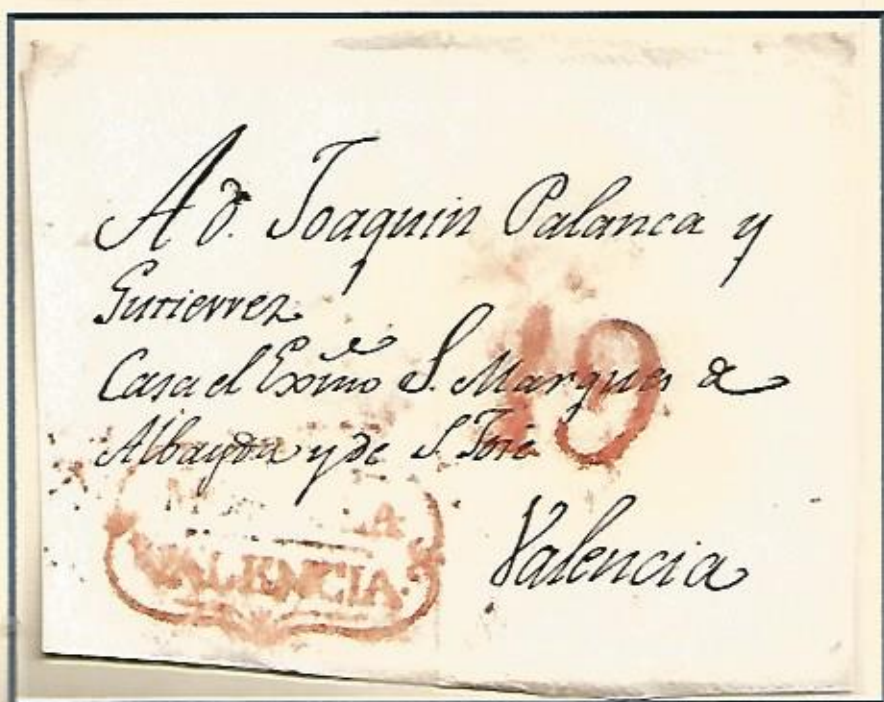 A D. Joaquin Palanca y
Gutierrez
Casa el Exmo S. Marques de
Albayda y de S. José
19
VALENCIA.
Valencia